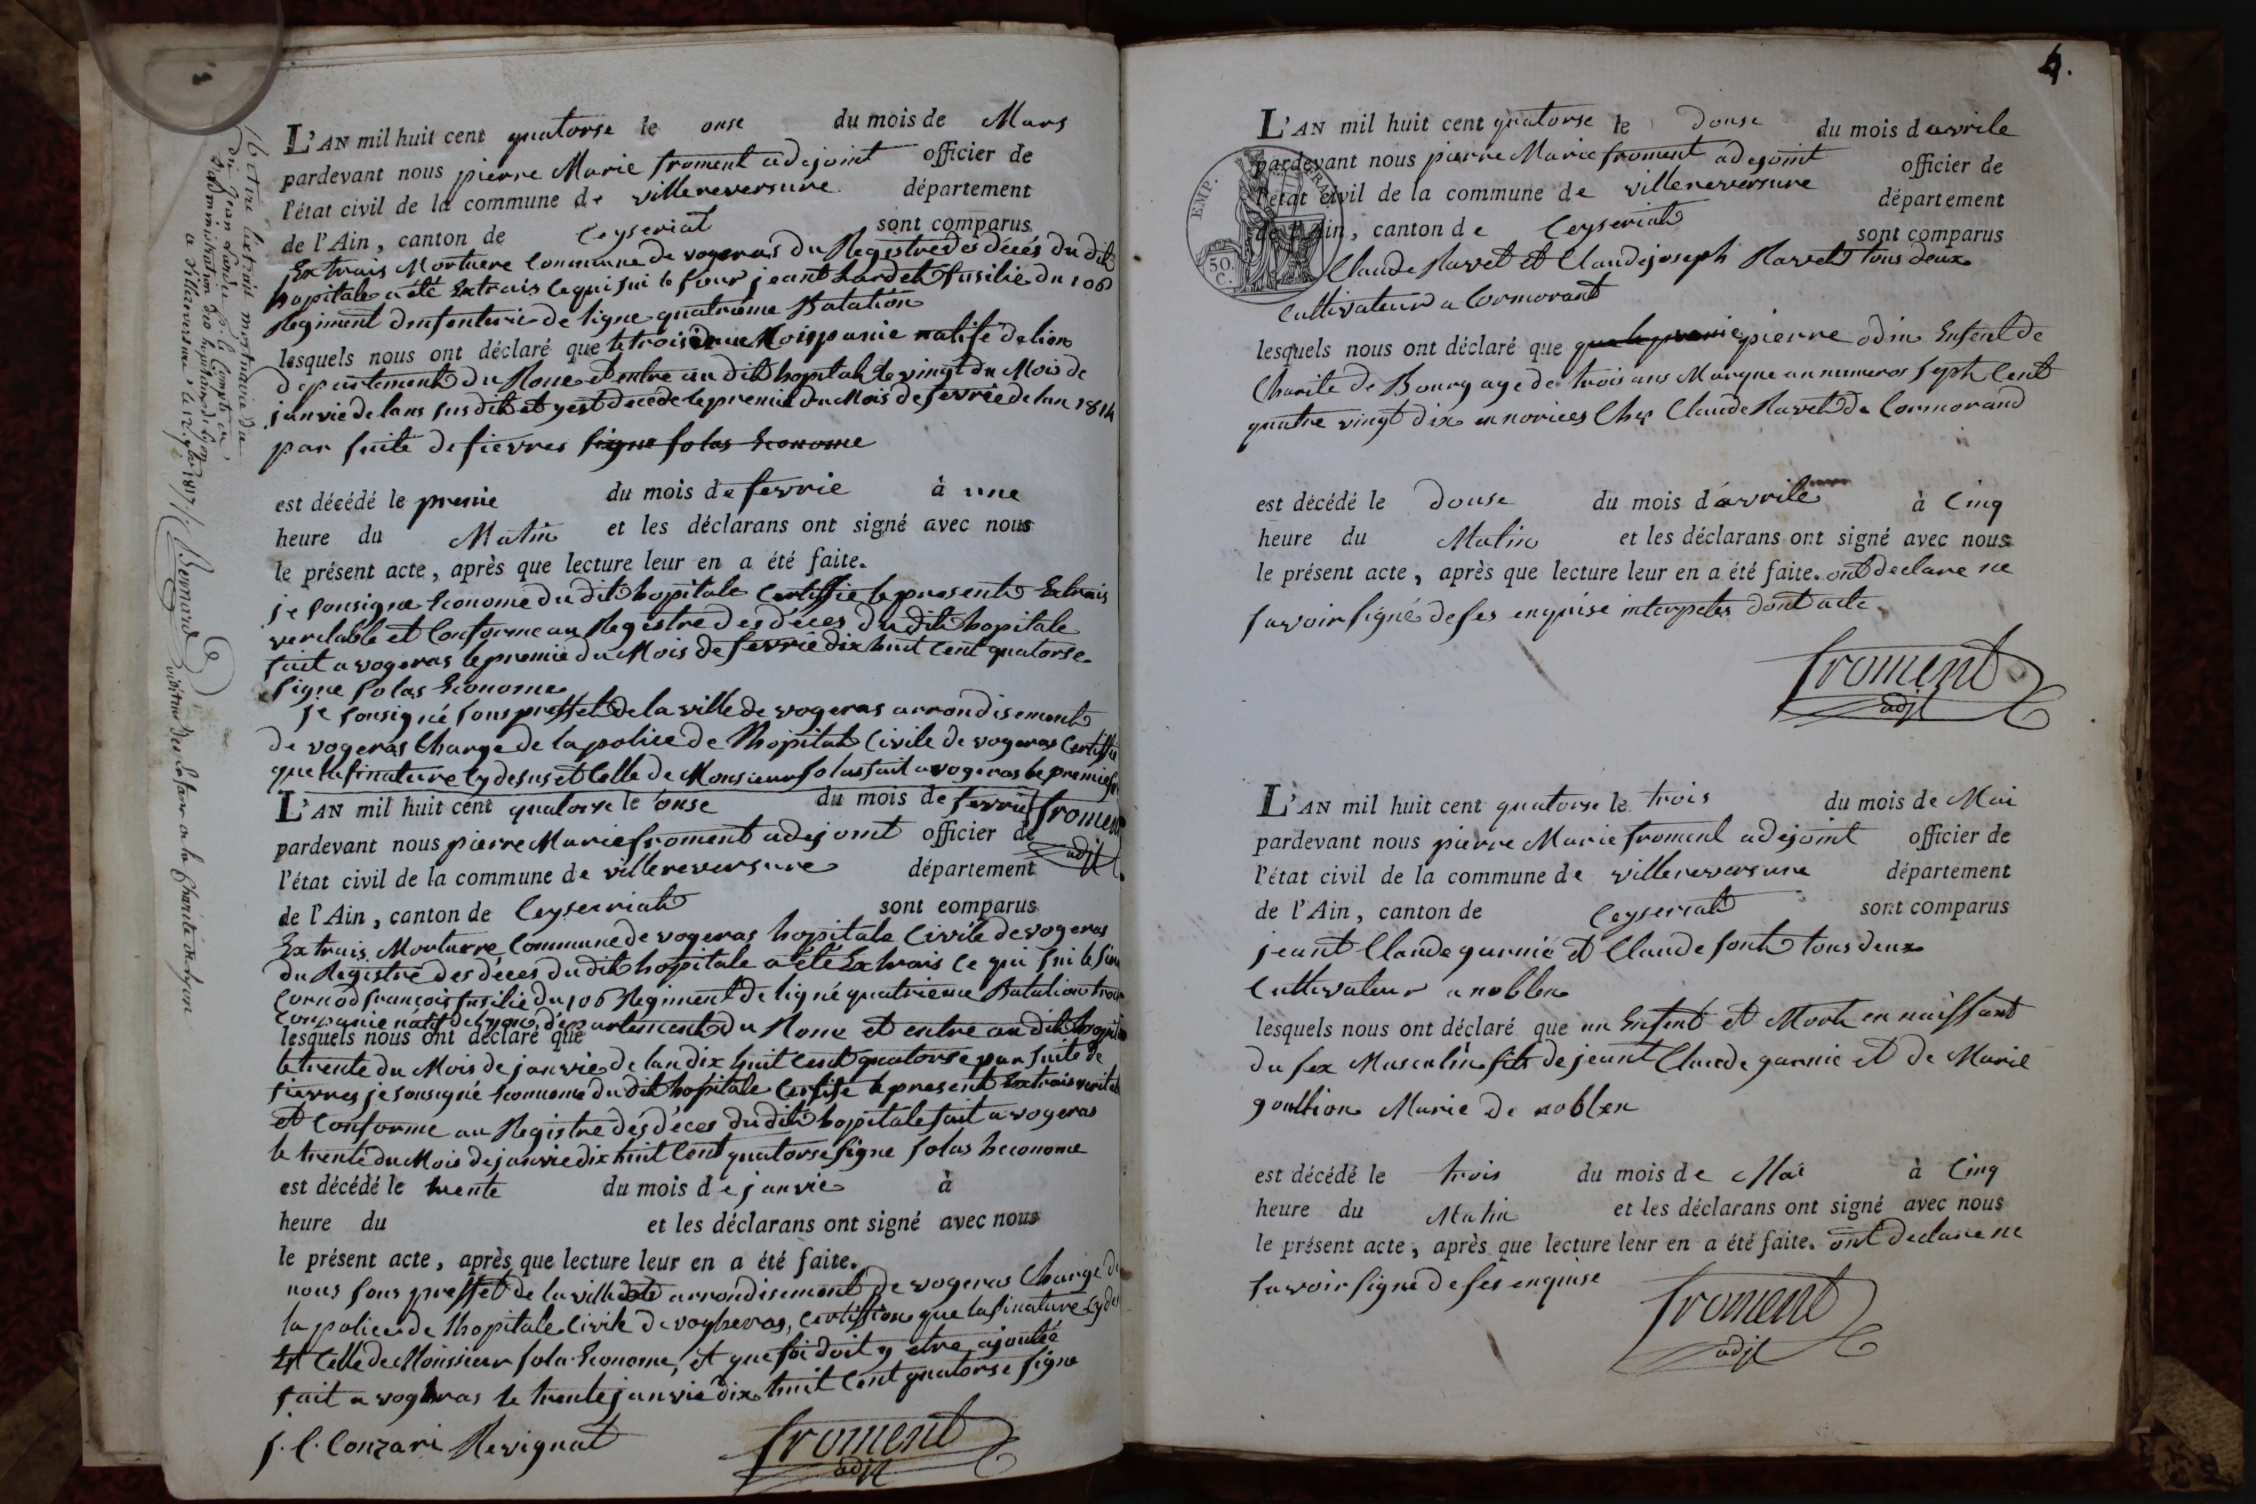 L'AN mil huit cent quatorse le onse du mois de Mars
pardevant nous pierre Marie froment adejoint officier de
l'état civil de la commune de villereversure département
de l'Ain, canton de Ceyseriat sont comparus
Extrais Mortuere Commune de vogeras du Registre des décés du dit
hopitale a été Extrais ce qui sui le sour jeant hardet fusilié du 106
Regiment dinfenterie de ligne quatriéme Batalion
lesquels nous ont déclaré que le troisieme Conpanie natife de lion
departement du Rone et entre au dit hopital le vingt du Mois de
janvie de lans sus dit et y est decede le premie du Mois de fevrie de lan 1814
par suite de fievres signe solas Econome
est décédé le premie du mois de fevrie à une
heure du Matin et les déclarans ont signé avec nous
le présent acte, après que lecture leur en a été faite.
je sousigne Econome du dit hopitale Certiffie le present Extrais
veritable et Conforme au Registre des déces du dit hopitale
fait a vogeras le premie du Mois de fevrie dix huit Cent quatorse
signe solas Econome
je sousigné sous preffet de la ville de vogeras arrondisement
de vogeras Charge de la police de lhopital Civile de vogeras Certiffie
que la sinature cy desus et Celle de Monsieur solas fait a vogeras le premie
froment
adjt
L'AN mil huit cent quatorse le onse du mois de fevrié
pardevant nous pierre Marie froment adejoint officier de
l'état civil de la commune de villereversure département
de l'Ain, canton de Ceyseriat sont comparus
Extrais Morturre Commune de vogeras hopitale Civile de vogeras
du Registre des déces du dit hopitale a été Extrais Ce qui sui le
Cornod françois fusilié du 106 Regiment de ligné quatrieme Batalion
Conpanie natif de lyon, departement du Rone et entre au dit
lesquels nous ont déclaré que
le trente du Mois de janvie de lan dix huit Cent quatorse par suite de
fievres je sousigné Econome du dit hopitale Certifie le present Extrais
et Conforme au Registre dés déces du dit hopitale fait a vogeras
le trente du Mois de janvie dix huit Cent quatorse signe solas heconome
est décédé le trente du mois de janvie à
heure du et les déclarans ont signé avec nous
le présent acte, après que lecture leur en a été faite.
nous sous preffet de la ville arrondisement de vogeras Charge de
la police de lhopitale Civile de vogheras, Certiffions que la sinature cy
Est Celle de Monsieur sola Econome, et que foi doit y etre ajoutée
fait a vogeras le trente janvie dix huit Cent quatorse signe
Conzari Revignat
froment
adjt
4.
L'AN mil huit cent quatorse le douse du mois d'avrile
pardevant nous pierre Marie froment adejoint officier de
l'état civil de la commune de villereversure département
de l'Ain, canton de Ceyseriat sont comparus
EMP.
50.
C.
Claude Ravet et Claude joseph Ravet tous deux
Cultivateur a Cormorant
lesquels nous ont déclaré que pierre odin Enfent de
Charite de Bourg age de trois ans Marque au numeros septh Cent
quatre vingt dix en norices Ches Claude Ravet de Cormorand
est décédé le douse du mois d'avrile à Cinq
heure du Matin et les déclarans ont signé avec nous
le présent acte, après que lecture leur en a été faite. ont declare ne
savoir signé de ses enquise interpeles dont acte
froment
adjt
L'AN mil huit cent quatorse le trois du mois de Mai
pardevant nous pierre Marie froment adejoint officier de
l'état civil de la commune de villereversure département
de l'Ain, canton de Ceyseriat sont comparus
jeant Claude garnié et Claude font tous deux
Cultivateur a noblen
lesquels nous ont déclaré que un Enfent et Mort en naissant
du sex Masculin fils de jeant Claude garnie et de Marie
goultion Marie de noblen
est décédé le trois du mois de Mai à Cinq
heure du Matin et les déclarans ont signé avec nous
le présent acte, après que lecture leur en a été faite. ont declare ne
savoir signe de ses enquise
froment
adjt